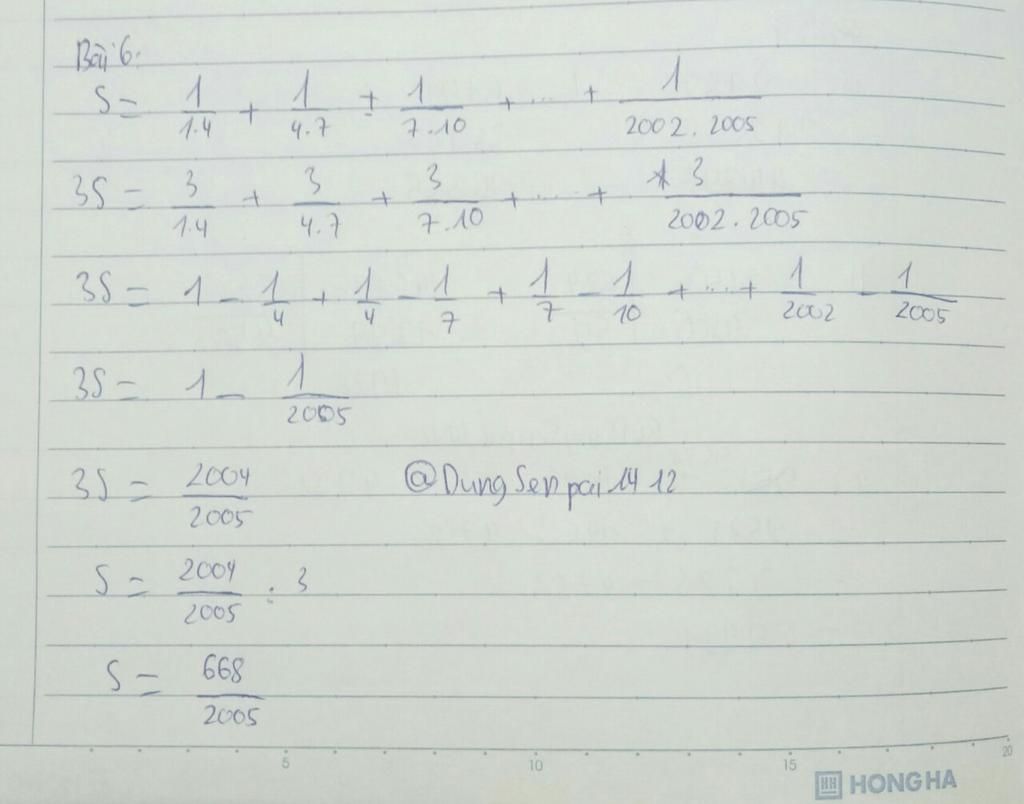 Bài 6.
S = 1/1.4 + 1/4.7 + 1/7.10 + ... + 1/2002.2005
3S = 3/1.4 + 3/4.7 + 3/7.10 + ... + 3/2002.2005
3S = 1 - 1/4 + 1/4 - 1/7 + 1/7 - 1/10 + ... + 1/2002 - 1/2005
3S = 1 - 1/2005
3S = 2004/2005 @DungSenpai1412
S = 2004/2005 : 3
S = 668/2005
5 10 15 20
HH HONG HA